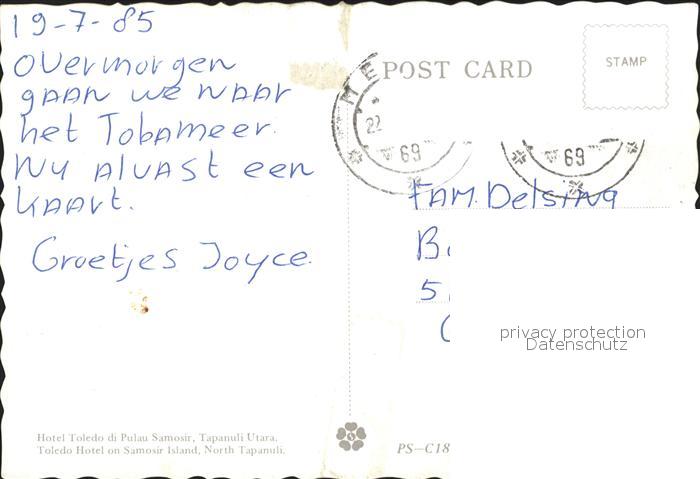 19-7-85
Overmorgen
gaan we naar
het Tobameer.
Nu alvast een
kaart.
Groetjes Joyce.
Hotel Toledo di Pulau Samosir, Tapanuli Utara.
Toledo Hotel on Samosir Island, North Tapanuli.
POST CARD
STAMP
ME
22
69
69
FAM. Delsing
B
5
PS-C18
privacy protection
Datenschutz